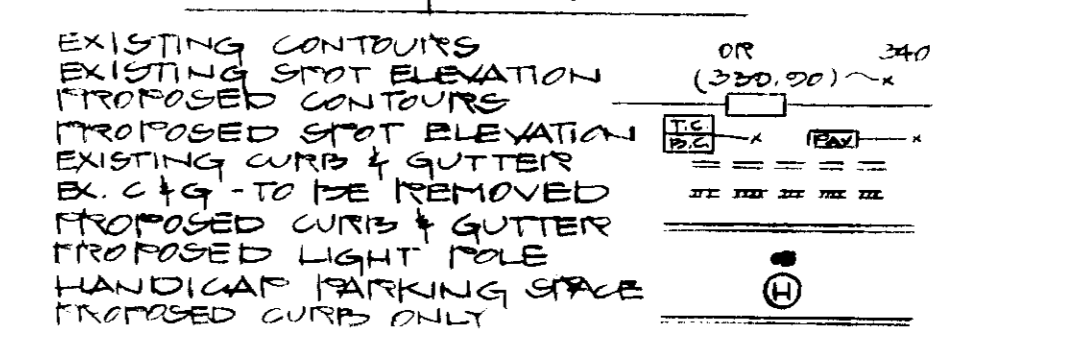 EXISTING CONTOURS OR 340
EXISTING SPOT ELEVATION (330.90) x
PROPOSED CONTOURS
PROPOSED SPOT ELEVATION T.C. B.C. x PAV x
EXISTING CURB & GUTTER
EX. C & G - TO BE REMOVED
PROPOSED CURB & GUTTER
PROPOSED LIGHT POLE
HANDICAP PARKING SPACE H
PROPOSED CURB ONLY